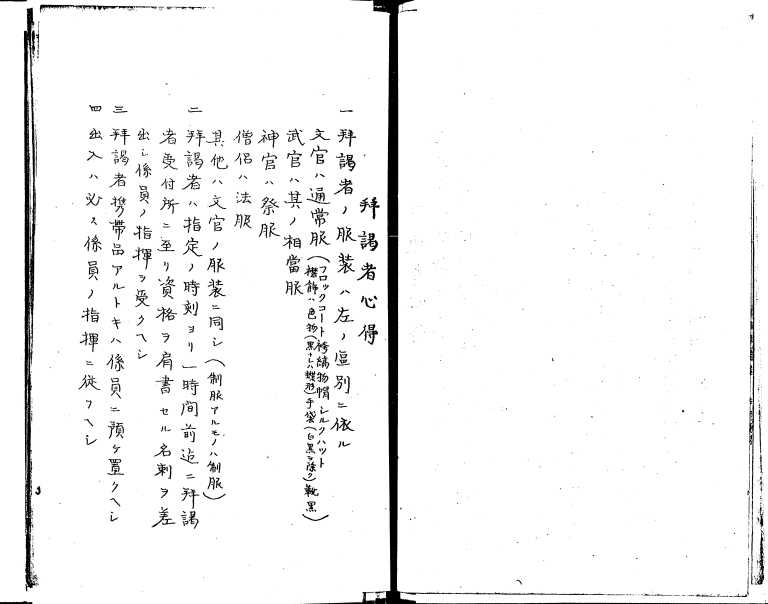 拜謁者心得
一 拜謁者ノ服装ハ左ノ區別ニ依ル
文官ハ通常服(フロックコート袴縞物帽シルクハット
襟飾ハ色物(黒ナレハ蝶形)手袋(白黒ヲ除ク)靴黒)
武官ハ其ノ相當服
神官ハ祭服
僧侶ハ法服
其他ハ文官ノ服装ニ同シ(制服アルモノハ制服)
二 拜謁者ハ指定ノ時刻ヨリ一時間前迄ニ拜謁
者受付所ニ至リ資格ヲ肩書セル名刺ヲ差
出シ係員ノ指揮ヲ受クヘシ
三 拜謁者携帶品アルトキハ係員ニ預ケ置クヘシ
四 出入ハ必ス係員ノ指揮ニ従フヘシ